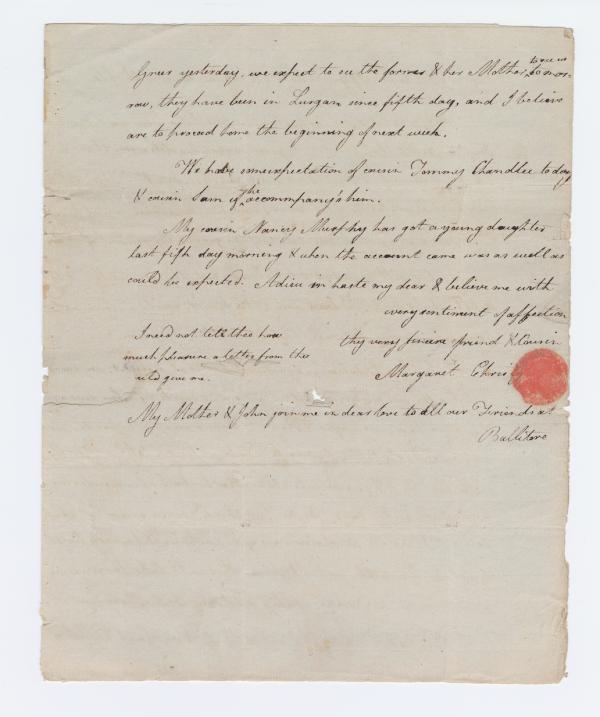 Greer yesterday, we expect to see the former & her Mother to see us tomor-
row, they have been in Lurgan since fifth day, and I believe
are to proceed home the beginning of next week.
We have some expectation of cousin Tommy Chandlee to day
& cousin Sam if he accompany's him.
My cousin Nancy Murphy has got a young daughter
last fifth day morning & when the account came was as well as
could be expected. Adieu in haste my dear & believe me with
every sentiment of affection
thy very sincere friend & Cousin
Margaret
I need not tell thee how
much pleasure a letter from thee
would give me.
My Mother & John join me in dear love to all our Friends at
Ballitore